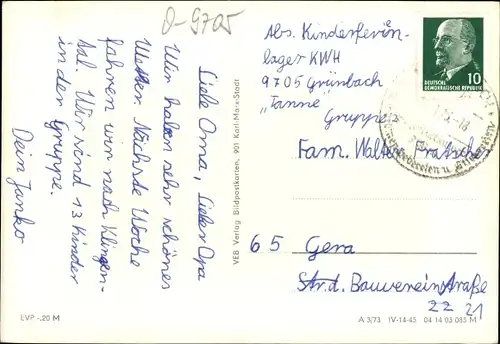 D-9705
Liebe Oma, lieber Opa
Wir haben sehr schönes
Wetter. Nächste Woche
fahren wir nach Klingen-
tal. Wir sind 13 Kinder
in der Gruppe.
Dein Janko
EVP -,20 M
VEB Verlag Bildpostkarten, 901 Karl-Marx-Stadt
Abs. Kinderferien-
lager KWH
9705 Grünbach
"Tanne"
Gruppe
Fam. Walter
65 Gera
Str. d. Bauvereinstraße
22 21
A 3/73 IV-14-45 04 14 03 085 M
10
DEUTSCHE
DEMOKRATISCHE REPUBLIK